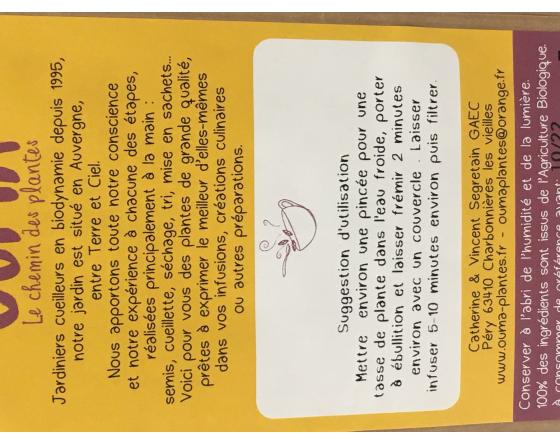 Le chemin des plantes
Jardiniers cueilleurs en biodynamie depuis 1995,
notre jardin est situé en Auvergne,
entre Terre et Ciel.
Nous apportons toute notre conscience
et notre expérience à chacune des étapes,
réalisées principalement à la main :
semis, cueillette, séchage, tri, mise en sachets...
Voici pour vous des plantes de grande qualité,
prêtes à exprimer le meilleur d'elles-mêmes
dans vos infusions, créations culinaires
ou autres préparations.
Suggestion d'utilisation
Mettre environ une pincée pour une
tasse de plante dans l'eau froide, porter
à ébullition et laisser frémir 2 minutes
environ avec un couvercle . Laisser
infuser 5-10 minutes environ puis filtrer.
Catherine & Vincent Segretain GAEC
Péry 63410 Charbonnières les vieilles
www.ouma-plantes.fr - oumaplantes@orange.fr
Conserver à l'abri de l'humidité et de la lumière.
100% des ingrédients sont issus de l'Agriculture Biologique.
à consommer de préférence avant: